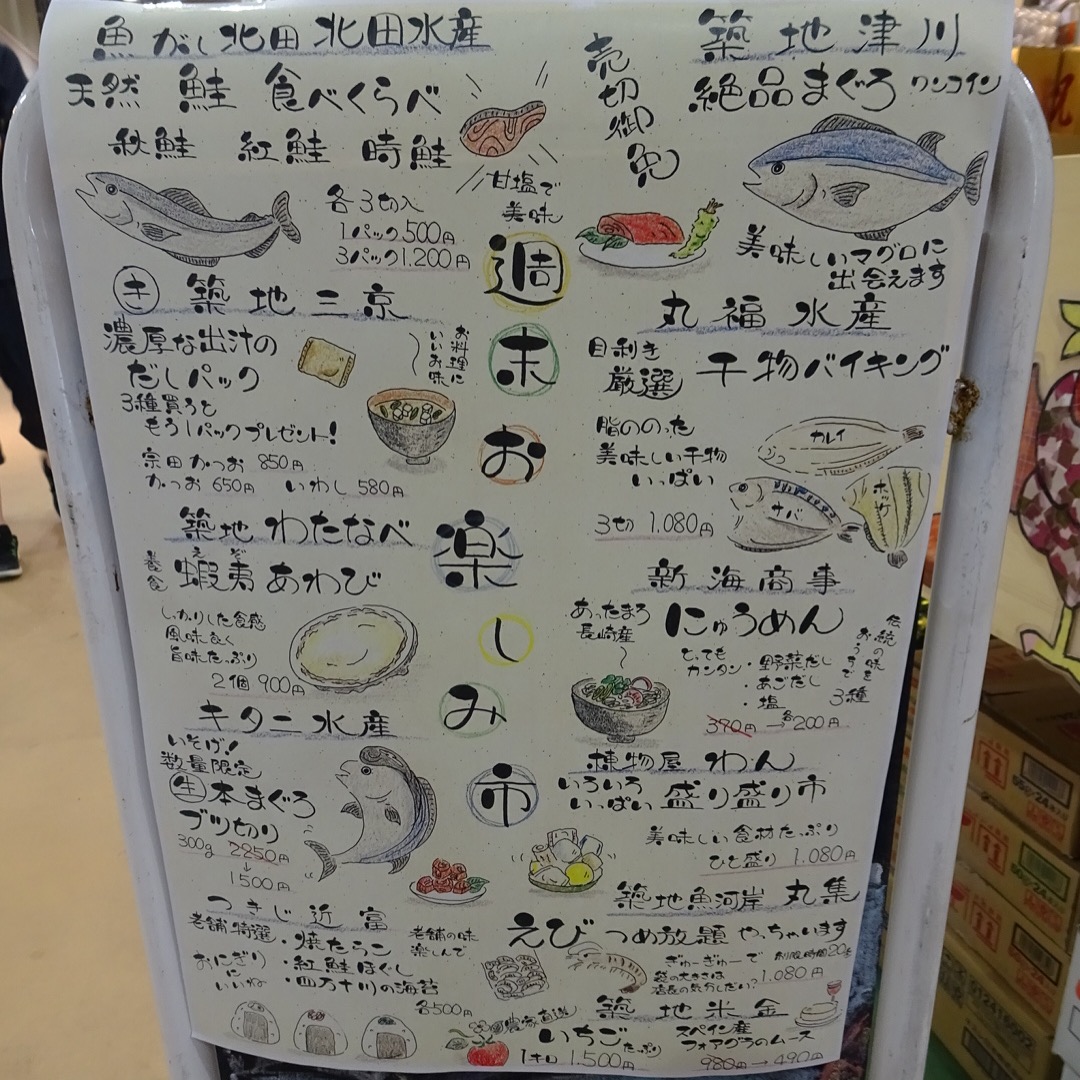 魚がし北田 北田水産
天然 鮭 食べくらべ
秋鮭 紅鮭 時鮭
甘塩で
美味
各3切入
1パック500円
3パック1.200円
キ 築地三京
濃厚な出汁の
だしパック
お料理に
いいお味
3種買うと
もう1パックプレゼント!
宗田かつお 850円
かつお 650円 いわし 580円
築地わたなべ
養食 蝦夷あわび
えぞ
しっかりした食感
風味良く
旨味たっぷり
2個 900円
キタニ水産
いそげ!
数量限定
生本まぐろ
ブツ切り
300g 2250円
↓
1500円
つきじ近富
老舗特選
・焼たらこ
・紅鮭ほぐし
・四万十川の海苔
おにぎり
にいいね
老舗の味
楽しんで
各500円
週末お楽しみ市
売切御免
築地津川
絶品まぐろ ワンコイン
美味しいマグロに
出会えます
丸福水産
目利き
厳選
干物バイキング
脂ののった
美味しい干物
いっぱい
カレイ
サバ
ホッケ
3切 1.080円
新海商事
あったまろ
長崎産
にゅうめん
とっても
カンタン
・野菜だし
・あごだし
・塩
伝統の味を
おうちで
3種
390円→各200円
棟物屋 わん
いろいろ
いっぱい
盛り盛り市
美味しい食材たっぷり
ひと盛り 1.080円
築地魚河岸 丸集
えび つめ放題 やっちゃいます
ぎゅーぎゅーで
制限時間20秒
袋の大きさは
店長の気分しだい?
1.080円
築地米金
農家直送
いちご
たっぷり
1キロ 1.500円
スペイン産
フォアグラのムース
980円→490円